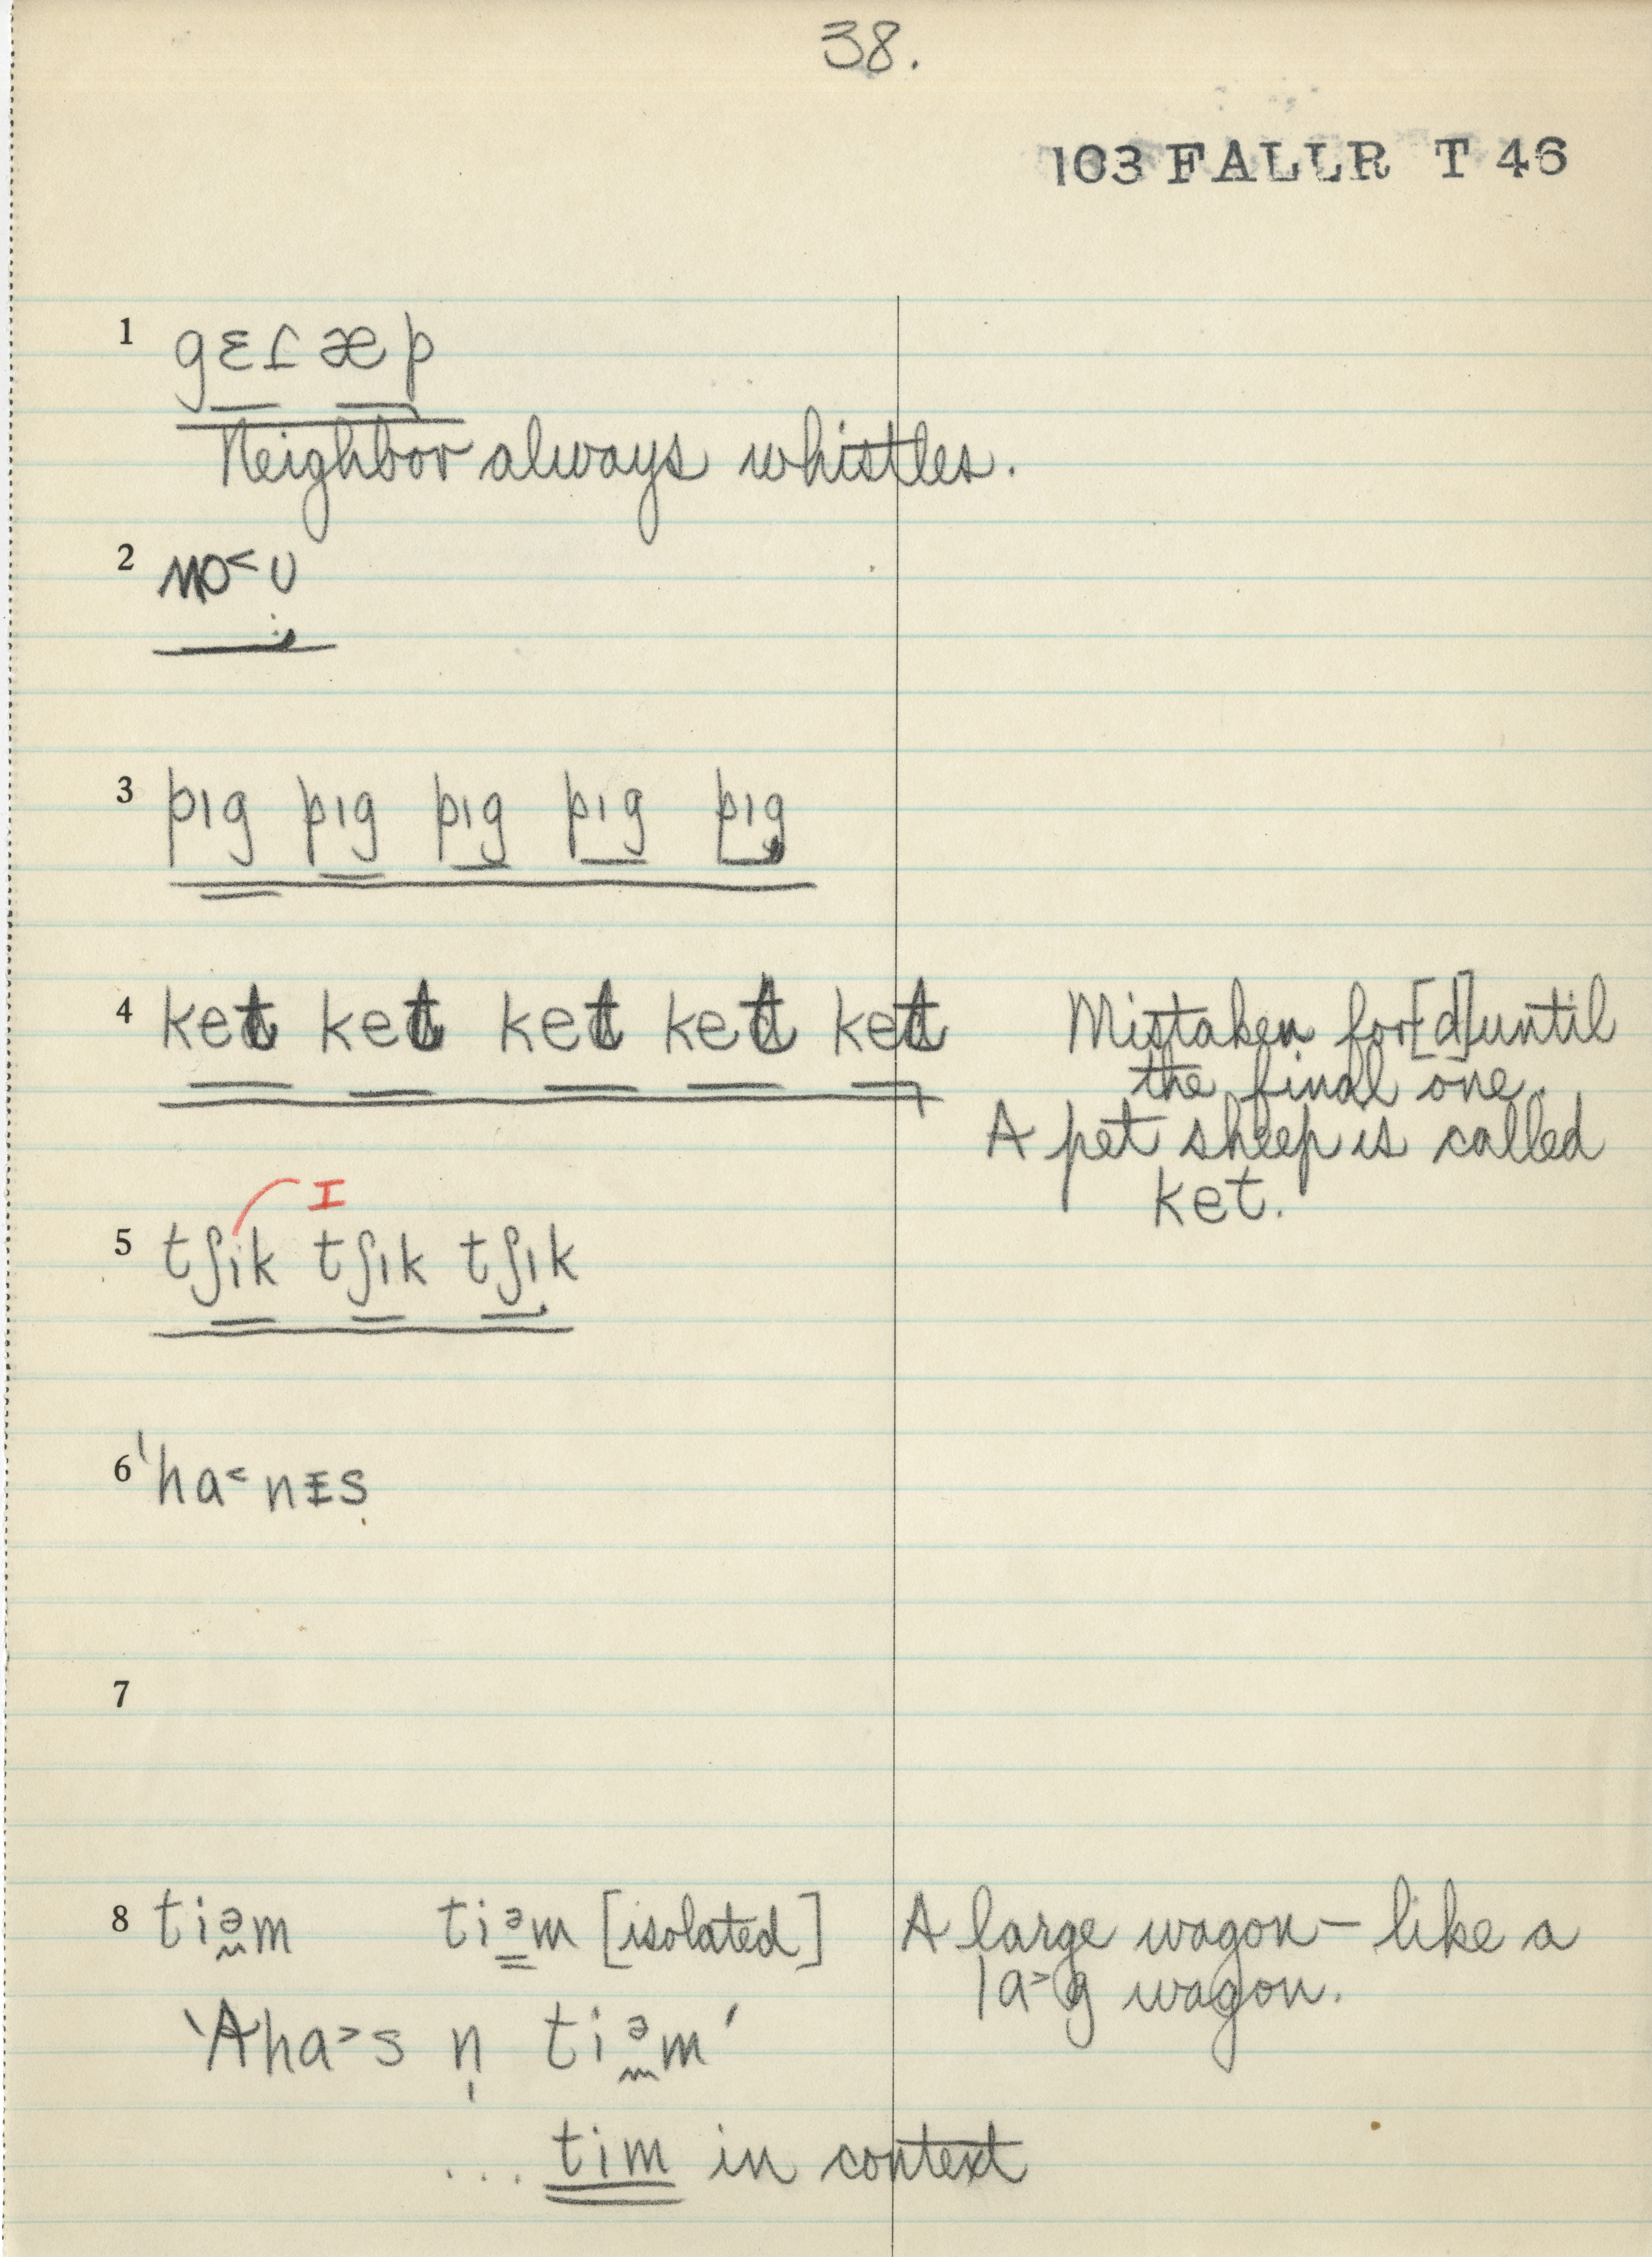 38.
103 FALLR T 46
1 gɛɾæp
Neighbor always whistles.
2
3 pıg pıg pıg pıg pıg
4 ket ket ket ket ket Mistaken for [d] until
the final one.
A pet sheep is called
ket.
I
5 tʃik tʃık tʃık
6 ˈha˂nɪs
7
8 tiəm tiəm [isolated] A large wagon – like a
la˃g wagon.
'Aha˃s n̩ tiəm'
... tim in context